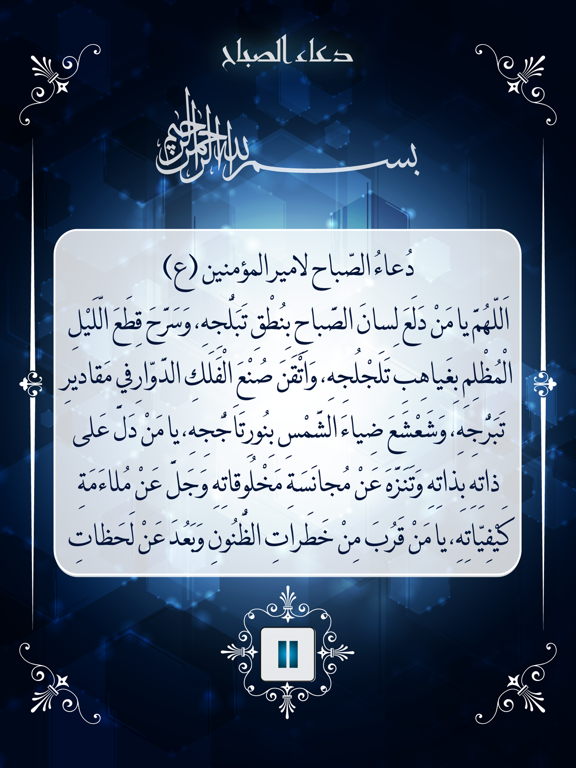 دعاء الصباح
بسم الله الرحمن الرحيم
دُعاءُ الصّباح لامير المؤمنين (ع)
اَللّهُمّ يا مَنْ دَلَعَ لِسانَ الصّباح بنُطْق تَبَلُّجِهِ، وَسَرّح قِطَعَ الَّليْلِ
الْمُظْلم بغَياهِب تَلَجْلُجِهِ، وَاَتْقَنَ صُنْعَ الْفَلَكِ الدّوّار في مَقادير
تَبَرُّجِهِ، وَشَعْشَعَ ضِياءَ الشّمْسِ بِنُورِ تَاَجُّجِهِ، يا مَنْ دَلّ عَلى
ذاتِهِ بذاتِهِ وَتَنَزّهَ عَنْ مُجانَسَةِ مَخْلُوقاتِهِ وَجَلّ عَنْ مُلاءَمَةِ
كَيْفِيّاتِهِ، يا مَنْ قَرُبَ مِنْ خَطَراتِ الظُّنُونِ وَبَعُدَ عَنْ لَحَظاتِ